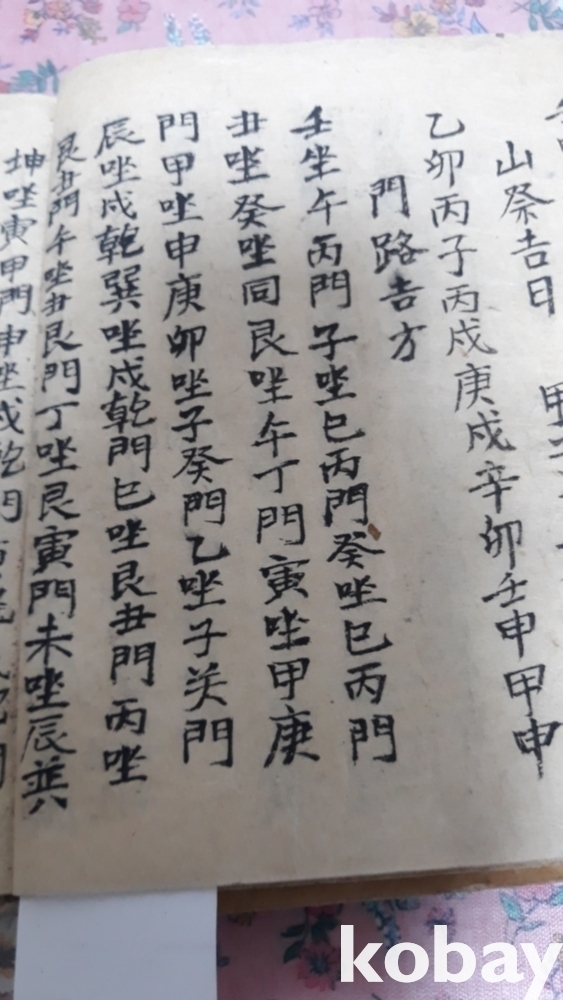 山祭吉日
乙卯丙子丙戍庚戍辛卯壬申甲申
門路吉方
壬坐午丙門子坐巳丙門癸坐巳丙門
丑坐癸坐同艮坐午丁門寅坐甲庚
門甲坐申庚卯坐子癸門乙坐子关門
辰坐戍乾巽坐戍乾門巳坐艮丑門丙坐
艮丑門午坐丑艮門丁坐艮寅門未坐辰巽
坤坐寅甲門申坐戍乾門
kobay